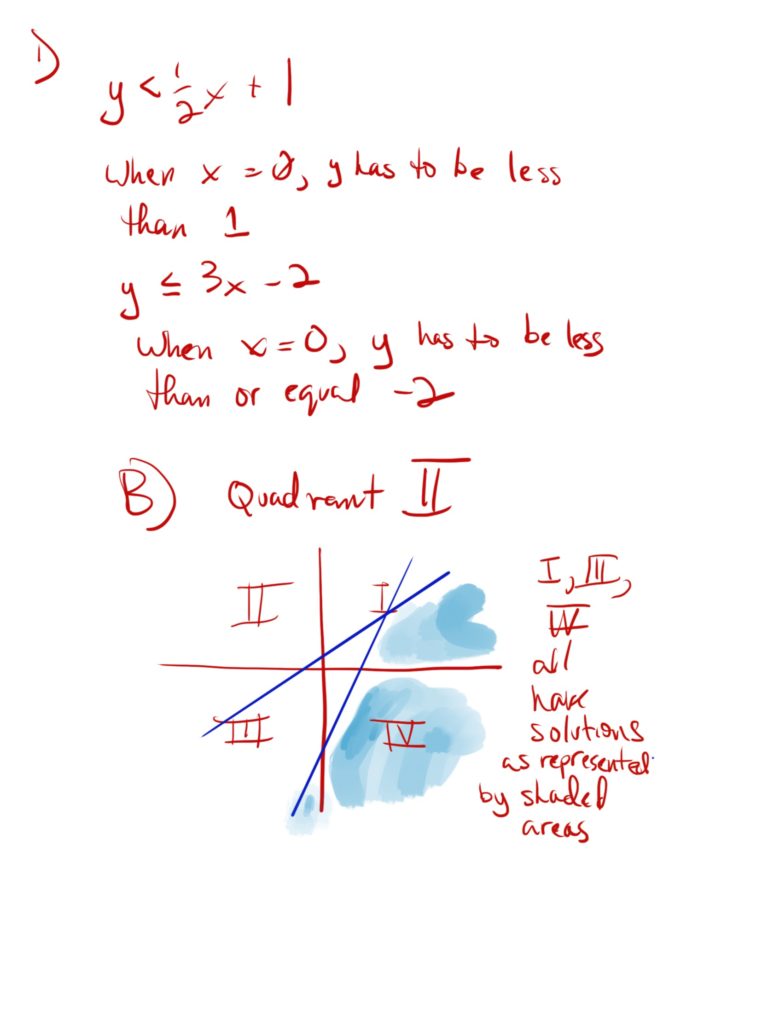 1)
y < 1/2 x + 1
When x = 0, y has to be less
than 1
y ≤ 3x - 2
When x = 0, y has to be less
than or equal -2
B) Quadrant II
II I
III IV
I, III,
IV
all
have
solutions
as represented
by shaded
areas